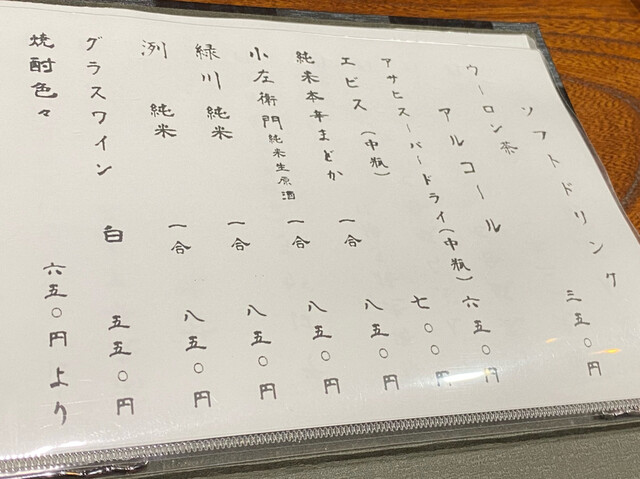 ソフトドリンク
ウーロン茶 三五〇円
アルコール
アサヒスーパードライ(中瓶) 六五〇円
エビス(中瓶) 七〇〇円
純米本辛まどか 一合 八五〇円
小左衛門純米生原酒 一合 八五〇円
緑川 純米 一合 八五〇円
洌 純米 一合 八五〇円
グラスワイン 白 五五〇円
焼酎色々 六五〇円より